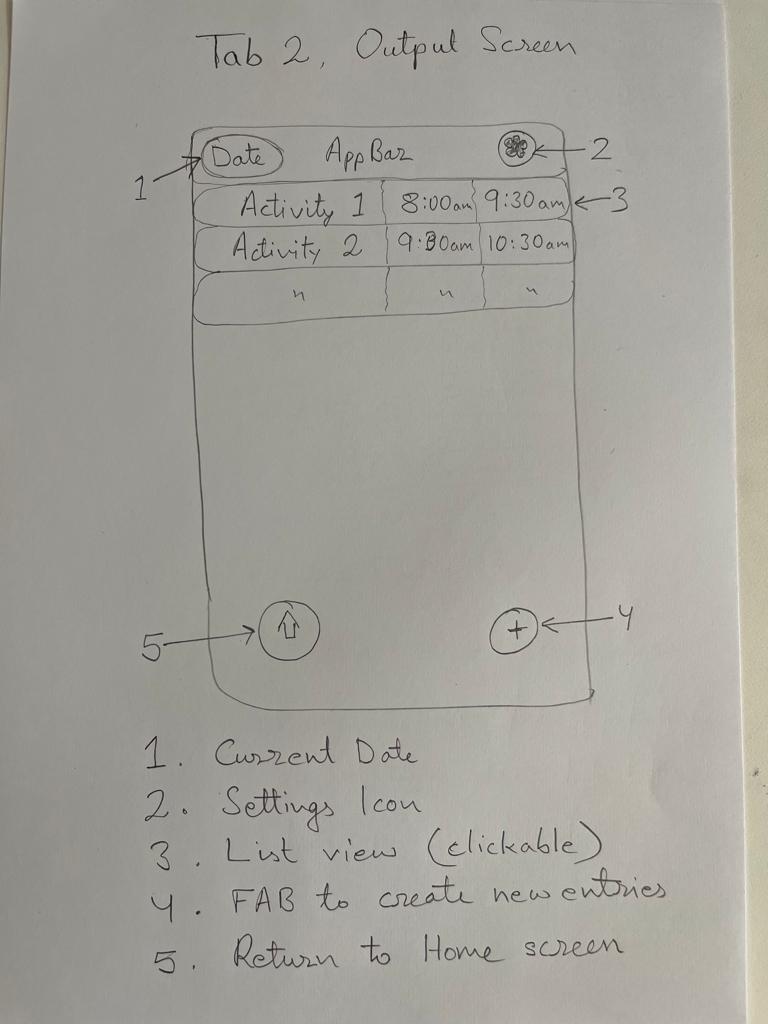 Tab 2, Output Screen
Date AppBar 2
1
Activity 1 8:00am 9:30am 3
Activity 2 9:30am 10:30am
" " "
+ 4
5
1. Current Date
2. Settings Icon
3. List view (clickable)
4. FAB to create new entries
5. Return to Home screen